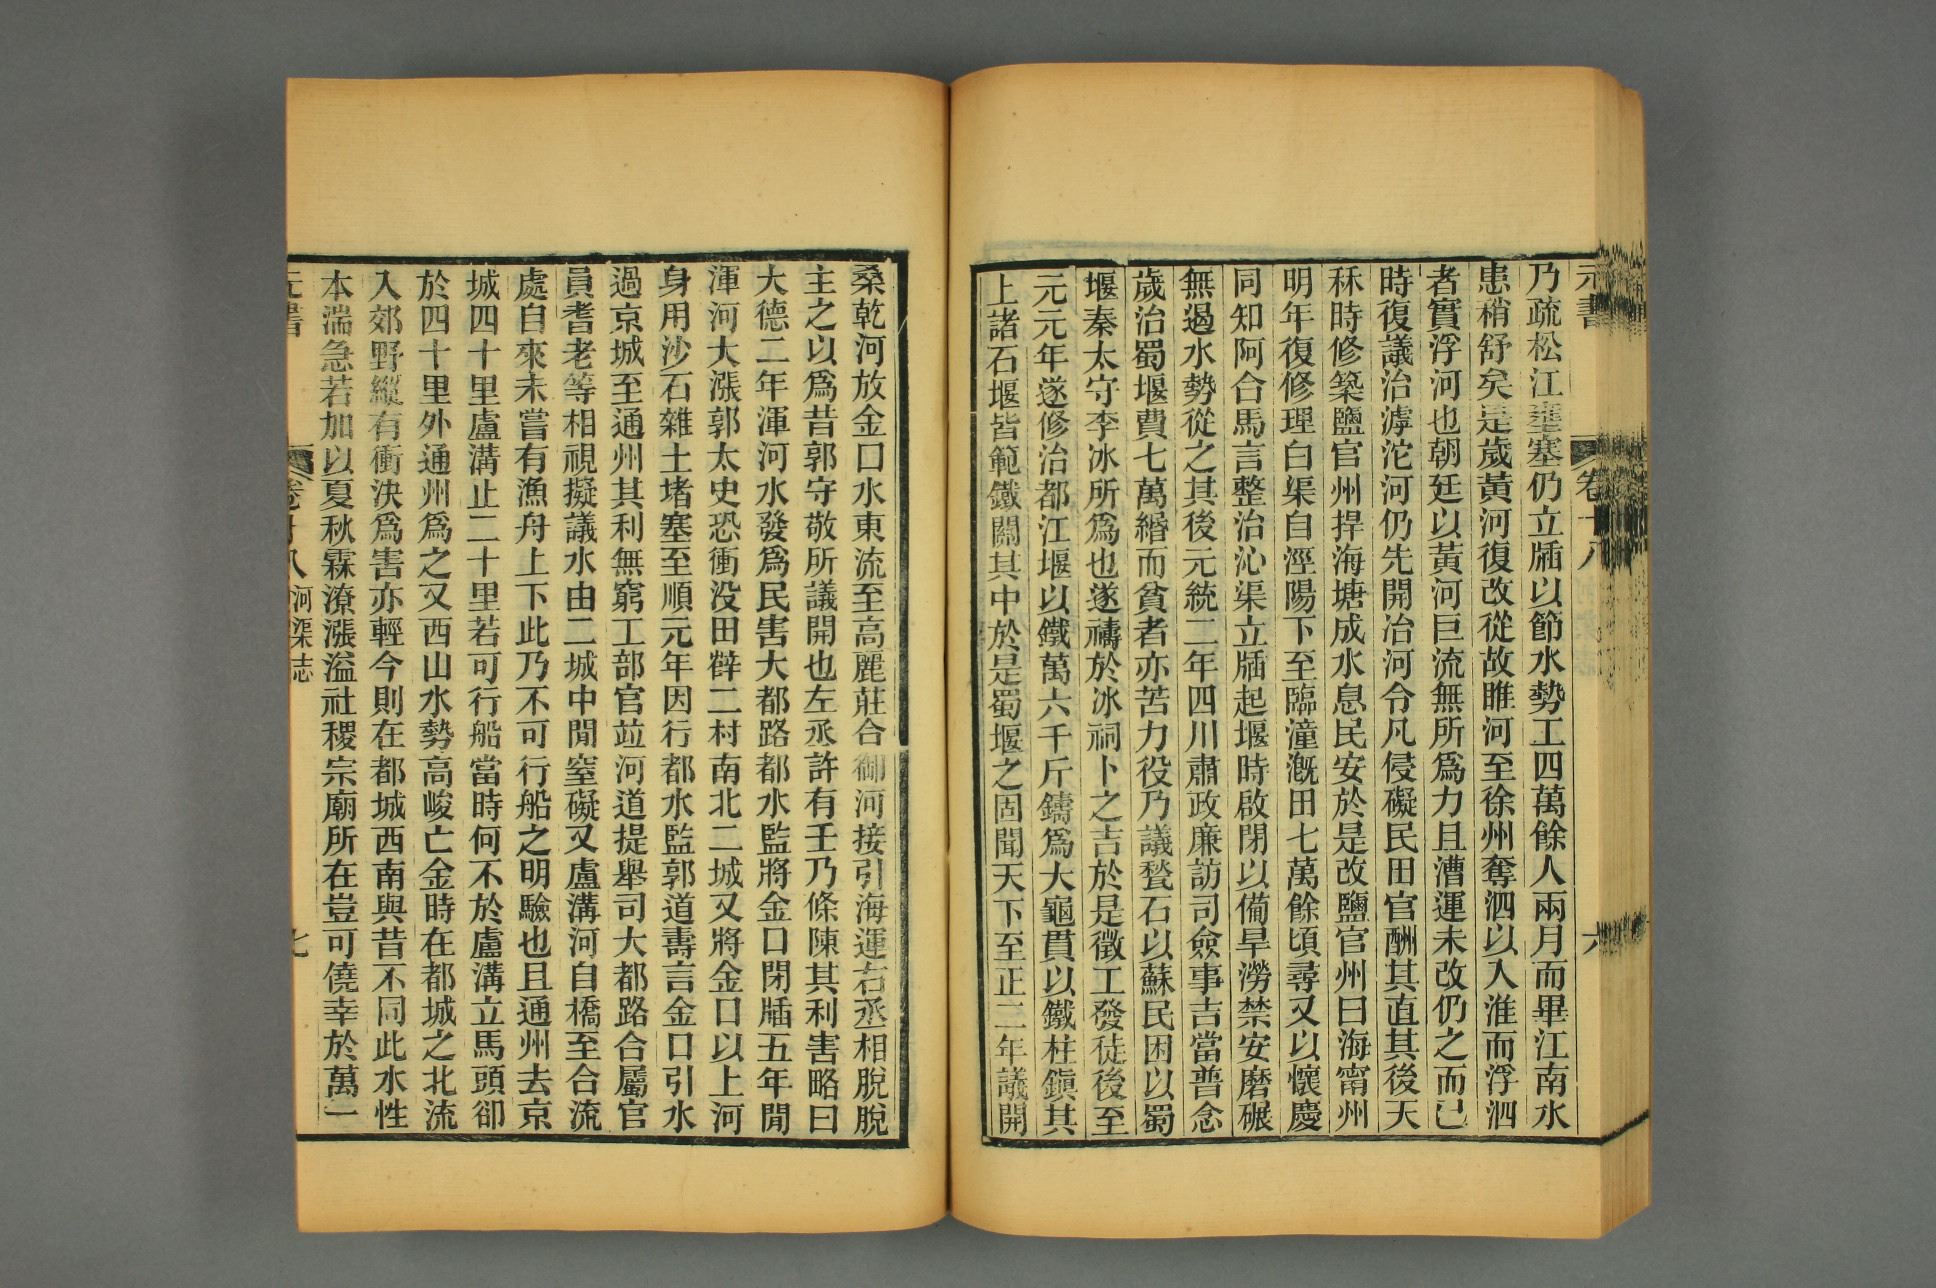 元書
卷十八
六
乃疏松江壅塞仍立牐以節水勢工四萬餘人兩月而畢江南水
患稍舒矣是歲黃河復改從故睢河至徐州奪泗以入淮而浮泗
者實浮河也朝廷以黃河巨流無所爲力且漕運未改仍之而已
時復議治滹沱河仍先開冶河令凡侵礙民田官酬其直其後天
秝時修築鹽官州捍海塘成水息民安於是改鹽官州曰海甯州
明年復修理白渠自涇陽下至臨潼漑田七萬餘頃尋又以懷慶
同知阿合馬言整治沁渠立牐起堰時啟閉以備旱澇禁安磨碾
無遏水勢從之其後元統二年四川肅政廉訪司僉事吉當普念
歲治蜀堰費七萬緡而貧者亦苦力役乃議甃石以蘇民困以蜀
堰秦太守李冰所爲也遂禱於冰祠卜之吉於是徵工發徒後至
元元年遂修治都江堰以鐵萬六千斤鑄爲大龜貫以鐵柱鎭其
上諸石堰皆範鐵關其中於是蜀堰之固聞天下至正二年議開
桑乾河放金口水東流至高麗莊合御河接引海運右丞相脫脫
主之以爲昔郭守敬所議開也左丞許有壬乃條陳其利害略曰
大德二年渾河水發爲民害大都路都水監將金口閉牐五年閒
渾河大漲郭太史恐衝没田薜二村南北二城又將金口以上河
身用沙石雜土堵塞至順元年因行都水監郭道壽言金口引水
過京城至通州其利無窮工部官竝河道提舉司大都路合屬官
員耆老等相視擬議水由二城中閒窒礙又盧溝河自橋至合流
處自來未嘗有漁舟上下此乃不可行船之明驗也且通州去京
城四十里盧溝止二十里若可行船當時何不於盧溝立馬頭卻
於四十里外通州爲之又西山水勢高峻亡金時在都城之北流
入郊野縱有衝決爲害亦輕今則在都城西南與昔不同此水性
本湍急若加以夏秋霖潦漲溢社稷宗廟所在豈可僥幸於萬一
元書
卷十八
河渠志
七